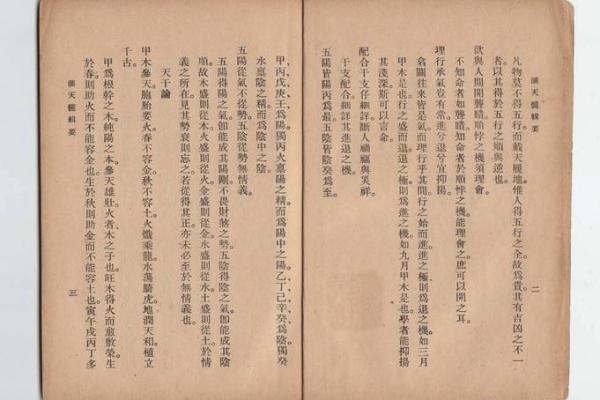 滴天髓輯要
二
凡物莫不得五行而戴天履地惟人得五行之全故爲貴其有吉凶之不一
者以其得於五行之順與逆也。
欲與人間開聾聵順悖之機須理會。
不知命者如聾聵知命者於順悖之機能理會之庶可以開之耳。
理行承氣豈有常進兮退兮宜抑揚。
翕闢往來皆是氣而理行乎其間行之始而進進之極則爲退之機如三月
甲木是也行之盛而退退之極則爲進之機如九月甲木是也學者能抑揚
其淺深斯可以言命。
配合干支仔細詳斷人禍福與災祥。
干支配合細詳其進退之機。
五陽皆陽丙爲最五陰皆陰癸爲至。
甲、丙、戊、庚、壬、爲陽獨丙火稟陽之精而爲陽中之陽乙、丁、己、辛、癸、爲陰獨癸
水稟陰之精而爲陰中之陰。
五陽從氣不從勢五陰從勢無情義。
五陽得陽之氣卽能成其陽剛不畏財煞之勢五陰得陰之氣卽能成其陰
順故木盛則從木火盛則從火金盛則從金水盛則從水土盛則從土於情
義之所在見其勢衰則忘之若從得其正亦未必至於無情義也。
天干論
甲木參天脫胎要火春不容金秋不容土火熾乘龍水蕩騎虎地潤天和植立
千古。
甲爲根幹之木純陽之木參天雄壯火者木之子也旺木得火而愈敷榮生
於春則助火而不能容金也生於秋則助金而不能容土也寅午戌丙丁多
滴天髓輯要
三